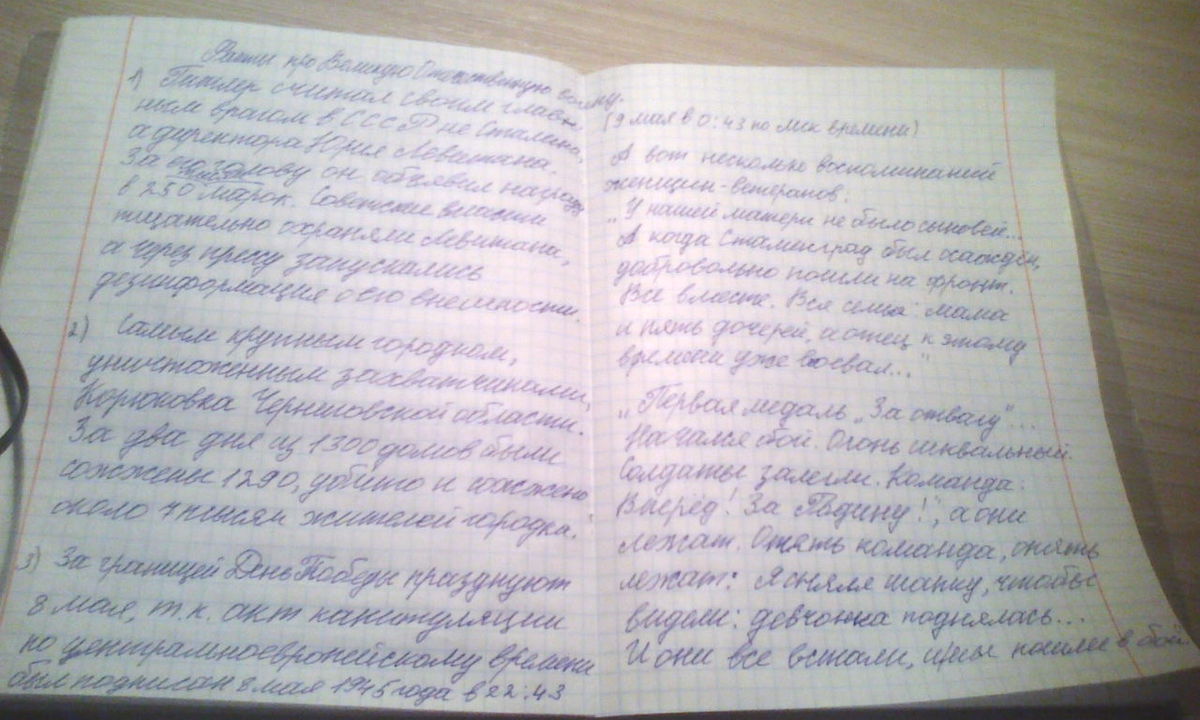 Факты про Великую Отечественную войну.
1) Гитлер считал своим глав-
ным врагом в СССР не Сталина,
а диктора Юрия Левитана.
За его голову он объявил награду
в 250 тыс. марок. Советские власти
тщательно охраняли Левитана,
а через прессу запускалась
дезинформация о его внешности.
2) Самым крупным городком,
уничтоженным захватчиками,
Корюковка Черниговской области.
За два дня из 1300 домов были
сожжены 1290, убито и сожжено
около 7 тысяч жителей городка.
3) За границей День Победы празднуют
8 мая, т.к. акт капитуляции
по центральноевропейскому времени
был подписан 8 мая 1945 года в 22:43
(9 мая в 0:43 по мск времени)
А вот несколько воспоминаний
женщин-ветеранов:
„У нашей матери не было сыновей...
А когда Сталинград был осажден,
добровольно пошли на фронт.
Все вместе. Вся семья: мама
и пять дочерей, а отец к этому
времени уже воевал..."
„Первая медаль „За отвагу"...
Начался бой. Огонь шквальный.
Солдаты залегли. Команда:
Вперёд! За Родину!", а они
лежат. Опять команда, опять
лежат. Я сняла шапку, чтобы
видели: девчонка поднялась...
И они все встали, и мы пошли в бой